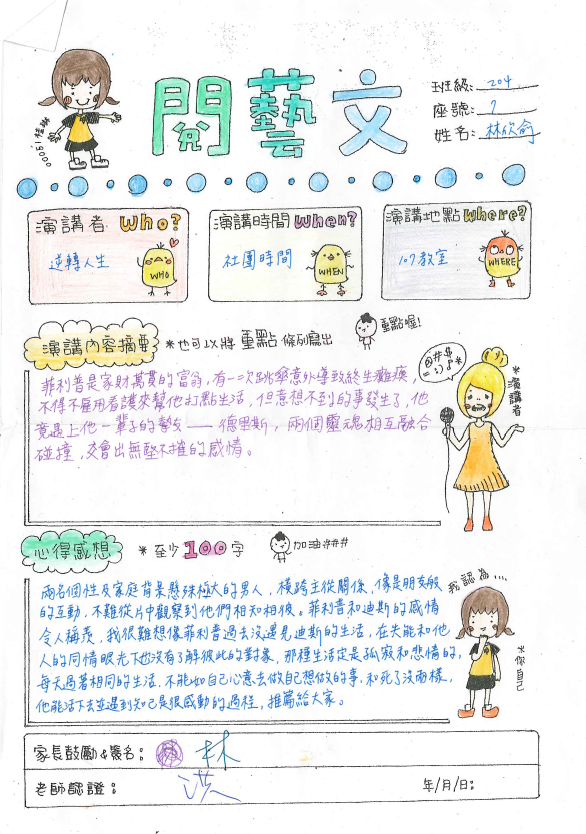 閱藝文
班級: 204
座號: 7
姓名: 林欣俞
演講者 Who?
逆轉人生
WHO
演講時間 When?
社團時間
WHEN
演講地點 Where?
107教室
WHERE
演講內容摘要 *也可以將 重點 條列寫出
重點喔!
菲利普是家財萬貫的富翁,有一次跳傘意外導致終生癱瘓,
不得不雇用看護來幫他打點生活,但意想不到的事發生了,他
竟遇上他一輩子的摯友——德里斯,兩個靈魂相互融合
碰撞,交會出無堅不摧的感情。
@#$
*演講者
心得感想 *至少100字
加油###
兩名個性及家庭背景懸殊極大的男人,橫跨主從關係,像是朋友般
的互動,不難從片中觀察到他們相知相惜。菲利普和迪斯的感情
令人稱羨,我很難想像菲利普過去沒遇見迪斯的生活,在失能和他
人的同情眼光下也沒有了解彼此的對象,那種生活定是孤寂和悲情的,
每天過著相同的生活,不能如自己心意去做自己想做的事,和死了沒兩樣,
他能活下去並遇到知己是很感動的過程,推薦給大家。
我認為....
*你自己
家長鼓勵&簽名: 林
老師認證: 洪
年/月/日: